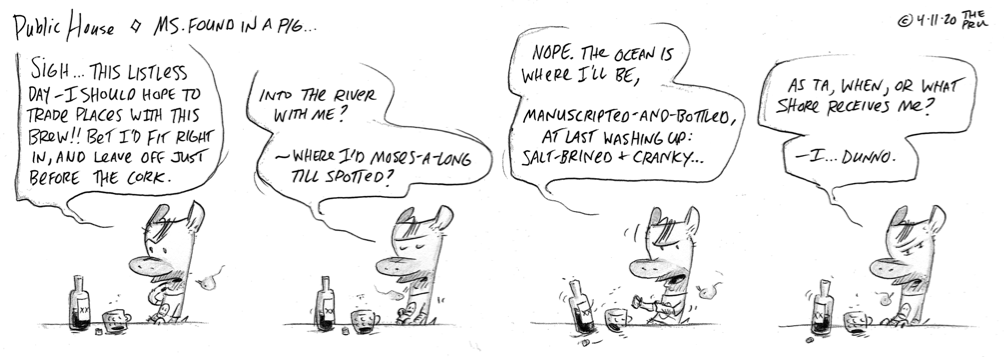 Public House ◇ MS. FOUND IN A PIG...
© 4·11·20 THE
PRU
SIGH... THIS LISTLESS
DAY – I SHOULD HOPE TO
TRADE PLACES WITH THIS
BREW!! BET I'D FIT RIGHT
IN, AND LEAVE OFF JUST
BEFORE THE CORK.
XX
INTO THE RIVER
WITH ME?
~ WHERE I'D MOSES-A-LONG
TILL SPOTTED?
XX
NOPE. THE OCEAN IS
WHERE I'LL BE,
MANUSCRIPTED-AND-BOTTLED,
AT LAST WASHING UP:
SALT-BRINED + CRANKY...
XX
AS TA, WHEN, OR WHAT
SHORE RECEIVES ME?
– I... DUNNO.
XX